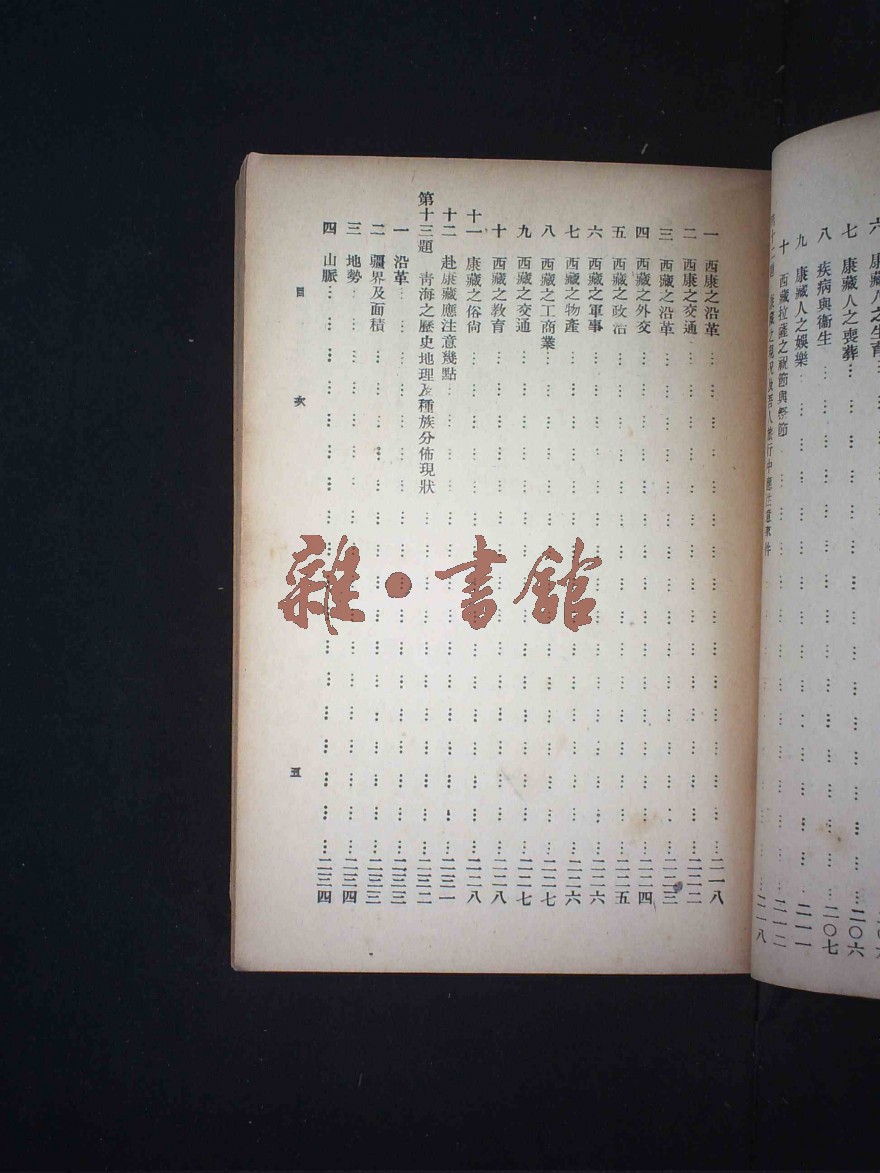 六 康藏人之生育
七 康藏人之喪葬…………二〇六
八 疾病與衞生…………二〇七
九 康藏人之娛樂…………二一一
十 西藏拉薩之祝節與祭節…………二一二
康藏之現況及吾人旅行中應注意事件…………二一八
一 西康之沿革…………二一八
二 西康之交通…………二二二
三 西藏之沿革…………二二三
四 西藏之外交…………二二四
五 西藏之政治…………二二五
六 西藏之軍事…………二二六
七 西藏之物產…………二二六
八 西藏之工商業…………二二七
九 西藏之交通…………二二七
十 西藏之教育…………二二八
十一 康藏之俗尙…………二二八
十二 赴康藏應注意幾點…………二三一
第十三題 青海之歷史地理及種族分佈現狀…………二三二
一 沿革…………二三三
二 疆界及面積…………二三三
三 地勢…………二三四
四 山脈…………二三四
目次 五
雜·書館